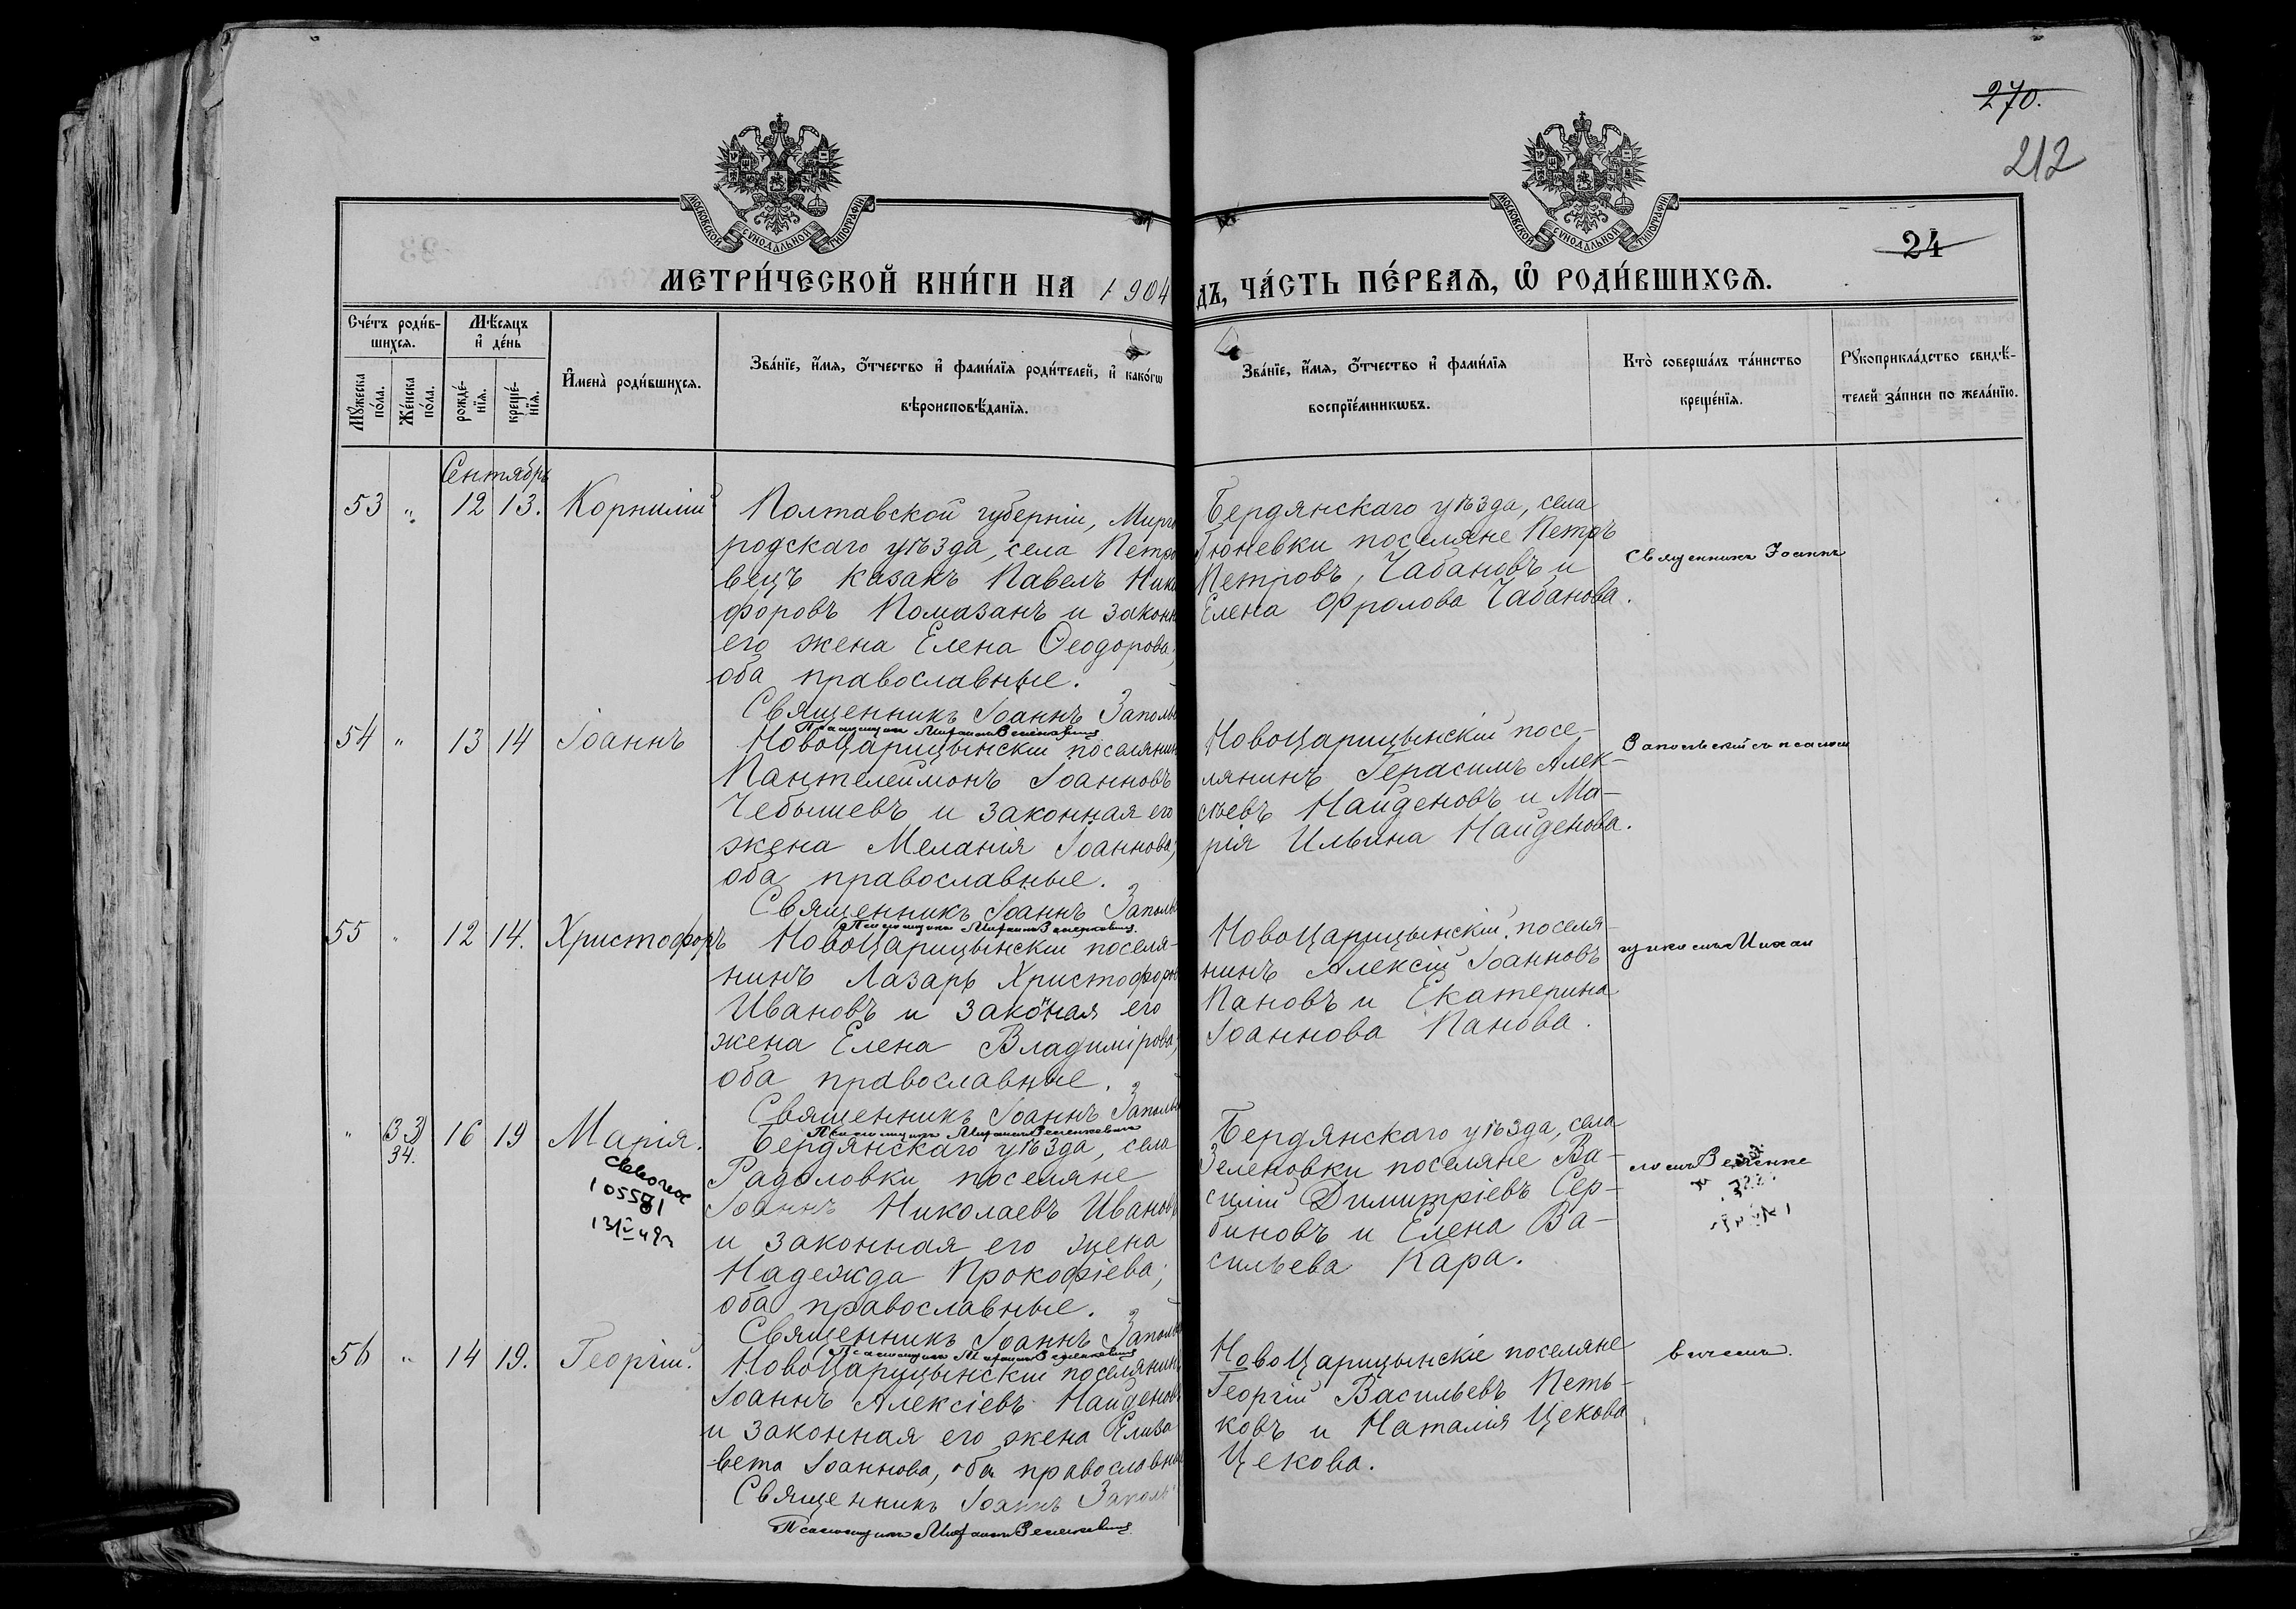 270.
212
24
МОСКОВСКОЙ СУНОДАЛЬНОЙ ТИПОГРАФІИ
МОСКОВСКОЙ СУНОДАЛЬНОЙ ТИПОГРАФІИ
МЕТРИ́ЧЕСКОЙ КНИ́ГИ НА 1904
ДЪ, ЧА́СТЬ ПЕ́РВАЯ, Ѡ РОДИ́ВШИХСЯ.
Сче́тъ роди́в-
шихся.
Мꙋ́жеска
по́ла.
Же́нска
по́ла.
Мѣ́сяцъ
и҆ де́нь
рожде́-
нїя.
креще́-
нїя.
И҆мена̀ роди́вшихся.
Зва́нїе, и҆́мя, ѻ҆́тчество и҆ фами́лїя роди́телей, и҆ како́гѡ
вѣроисповѣ́данїя.
Зва́нїе, и҆́мя, ѻ҆́тчество и҆ фами́лїя
воспрїе́мникѡвъ.
Кто̀ соверша́лъ та́инство
креще́нїя.
Рꙋкоприкла́дство свидѣ́-
телей за́писи по жела́нїю.
Сентябрь
53 " 12 13. Корнилій
Полтавской губерніи, Мирго
родскаго уѣзда, села Петро
вецъ казакъ Павелъ Ники
форовъ Помазанъ и законн
его жена Елена Ѳеодорова,
оба православные.
Священникъ Іоаннъ Заполь
Бердянскаго уѣзда, села
Гюневки поселяне Петръ
Петровъ, Чабановъ и
Елена Фролова Чабанова.
Священникъ Іоаннъ
54 " 13 14 Іоаннъ
НовоЦарицынскій поселянин
Пантелеимонъ Іоанновъ
Чебышевъ и законная его
жена Меланія Іоаннова;
оба православные.
Священникъ Іоаннъ Заполь
НовоЦарицынскій посе-
лянинъ Герасимъ Алек-
сѣевъ Найденовъ и Ма-
рія Ильина Найденова.
Запольскій съ псалом
55 " 12 14. Христофоръ
НовоЦарицынскій поселя-
нинъ Лазарь Христофоров
Ивановъ и законая его
жена Елена Владимірова;
оба православные.
Священникъ Іоаннъ Заполь
НовоЦарицынскій поселя-
нинъ Алексій Іоанновъ
Пановъ и Екатерина
Іоаннова Панова.
щикомъ Михаи
" 33 16 19 Марія.
34.
105581
Бердянскаго уѣзда, села
Радоловки поселяне
Іоаннъ Николаевъ Иванов
и законная его жена
Надежда Прокофіева;
оба православные.
Священникъ Іоаннъ Заполь
Бердянскаго уѣзда, села
Зеленовки поселяне Ва-
силій Димитріевъ Сер-
биновъ и Елена Ва-
сильева Кара.
56 " 14 19. Георгій.
НовоЦарицынскій поселянин
Іоаннъ Алексіевъ Найденов
и законная его жена Елиза
вета Іоаннова, оба православны
Священникъ Іоаннъ Заполь
НовоЦарицынскіе поселяне
Георгій Васильевъ Петь-
ковъ и Наталія Цекова
Цекова.
вичемъ.